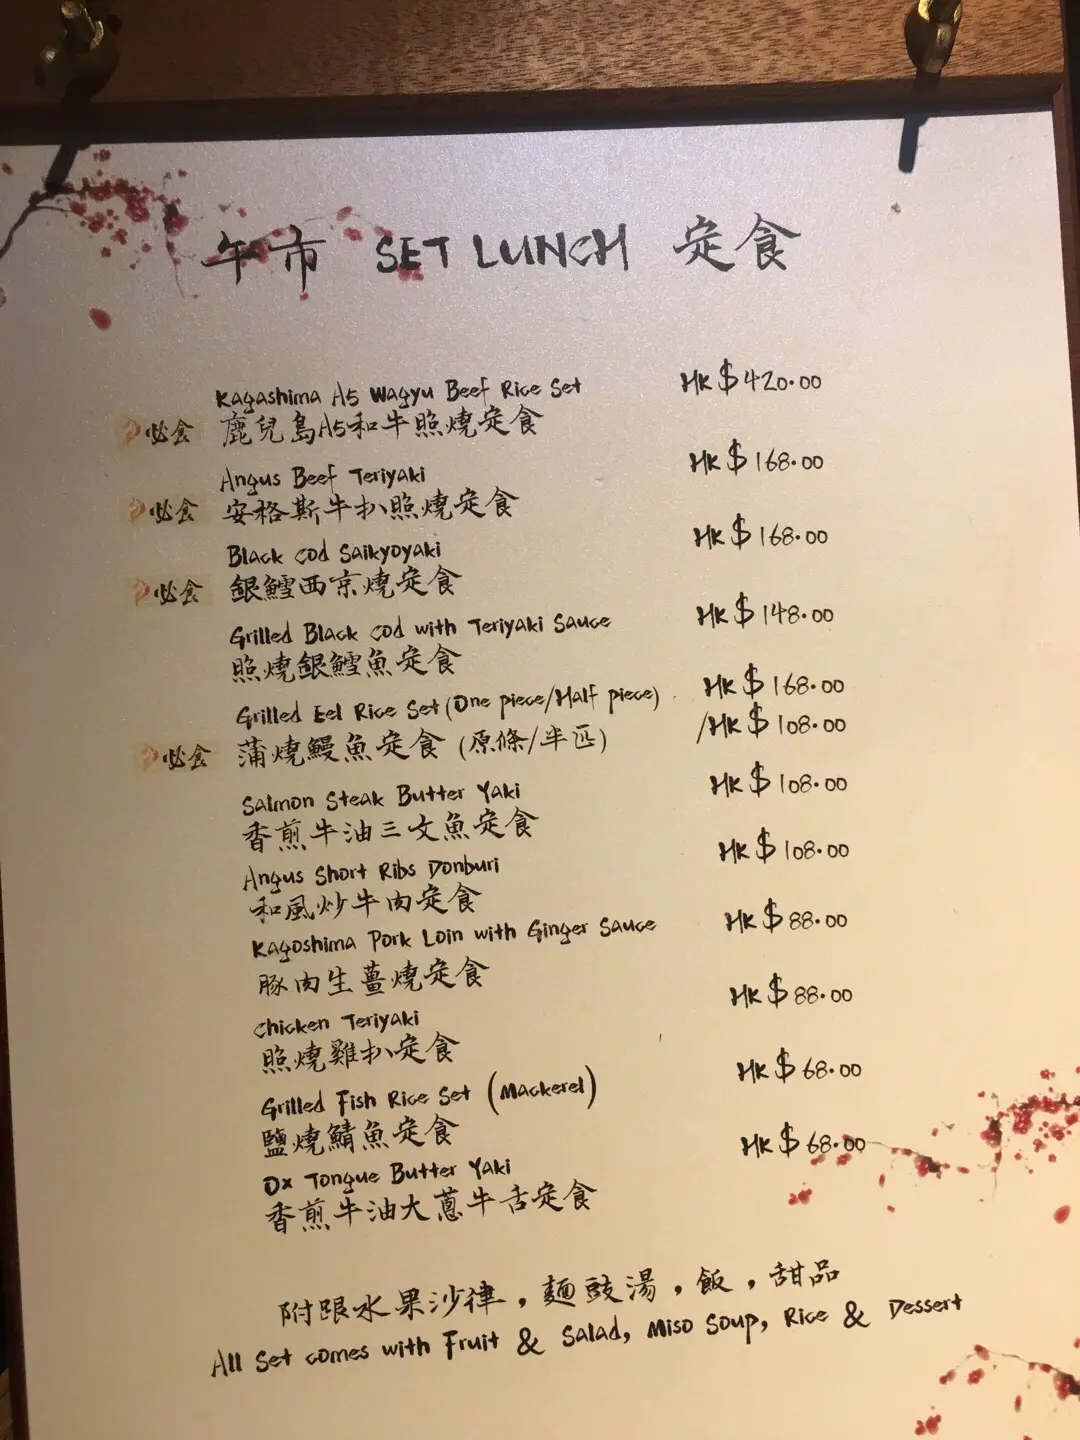 午市 SET LUNCH 定食
Kagashima A5 Wagyu Beef Rice Set HK$420.00
必食 鹿兒島A5和牛照燒定食
Angus Beef Teriyaki HK$168.00
必食 安格斯牛扒照燒定食
Black Cod Saikyoyaki HK$168.00
必食 銀鱈西京燒定食
Grilled Black Cod with Teriyaki Sauce HK$148.00
照燒銀鱈魚定食
Grilled Eel Rice Set (One piece/Half piece) HK$168.00
必食 蒲燒鰻魚定食 (原條/半匹) /HK$108.00
Salmon Steak Butter Yaki HK$108.00
香煎牛油三文魚定食
Angus Short Ribs Donburi HK$108.00
和風炒牛肉定食
Kagoshima Pork Loin with Ginger Sauce HK$88.00
豚肉生薑燒定食
Chicken Teriyaki HK$88.00
照燒雞扒定食
Grilled Fish Rice Set (Mackerel) HK$68.00
鹽燒鯖魚定食
Ox Tongue Butter Yaki HK$68.00
香煎牛油大蔥牛舌定食
附跟水果沙律，麵豉湯，飯，甜品
All Set comes with Fruit & Salad, Miso Soup, Rice & Dessert